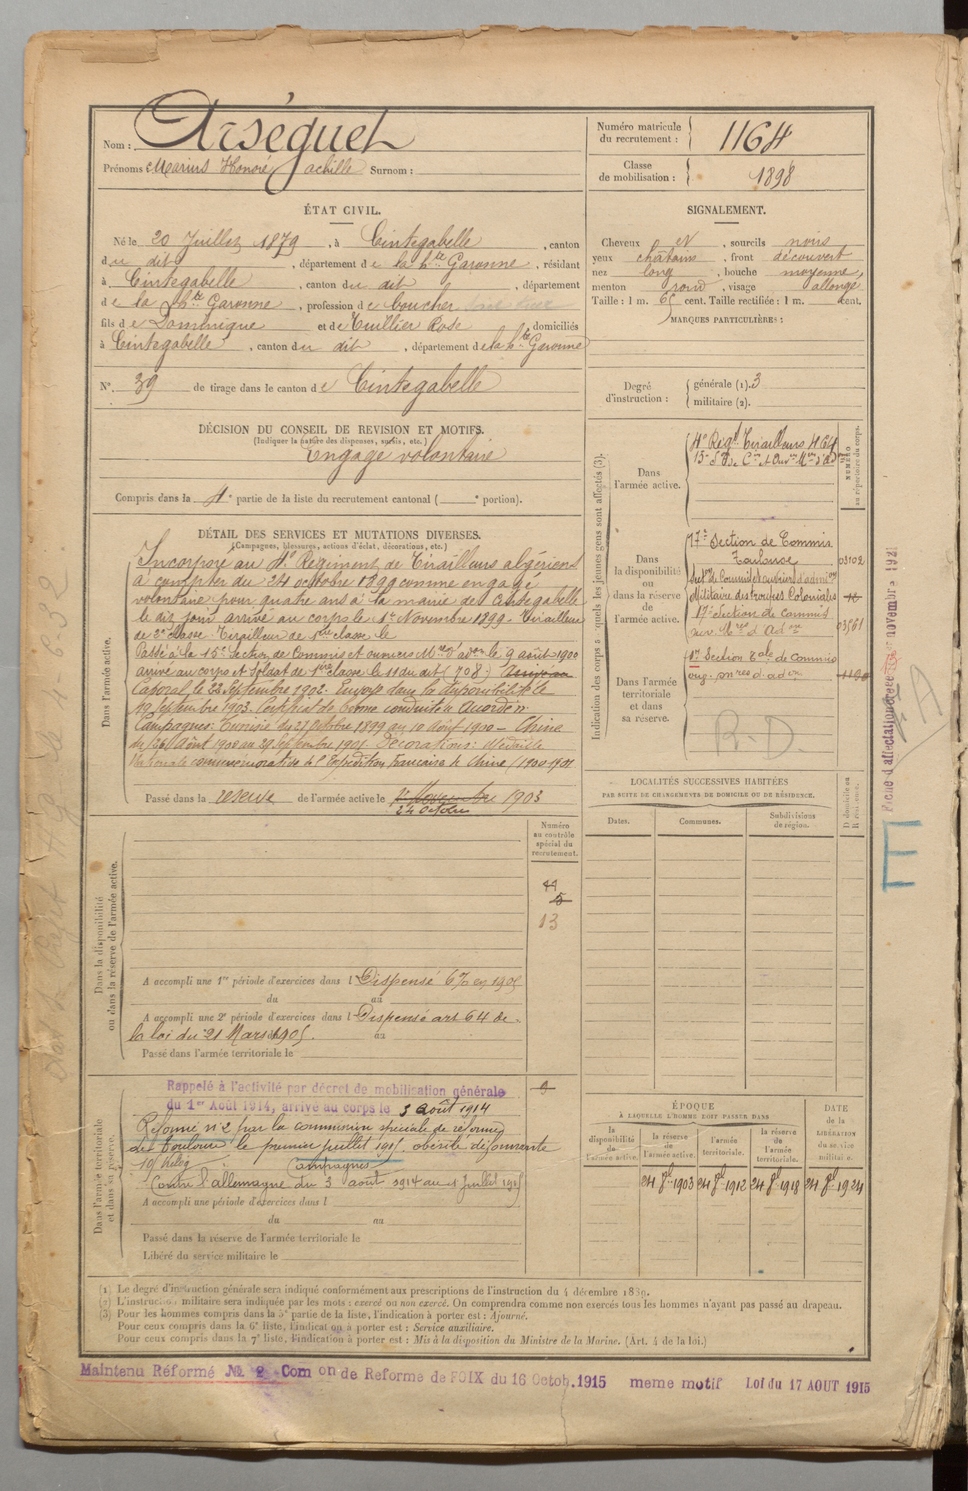 Nom : Arséguet
Prénoms Marius Honoré achille Surnom :
Numéro matricule
du recrutement : 1164
Classe
de mobilisation : 1898
ÉTAT CIVIL.
Né le 20 Juillet 1879, à Cintegabelle, canton
du dit, département de la hte Garonne, résidant
à Cintegabelle, canton du dit, département
de la hte Garonne, profession de boucher
fils de Dominique et de Tuillier Rose, domiciliés
à Cintegabelle, canton du dit, département de la hte Garonne
N° 39 de tirage dans le canton de Cintegabelle
SIGNALEMENT.
Cheveux et, sourcils noirs
yeux châtains, front découvert
nez long, bouche moyenne,
menton rond, visage allongé
Taille : 1 m. 65 cent. Taille rectifiée : 1 m. cent.
MARQUES PARTICULIÈRES :
Degré
d'instruction :
générale (1). 3
militaire (2).
DÉCISION DU CONSEIL DE REVISION ET MOTIFS.
(Indiquer la nature des dispenses, sursis, etc.)
Engagé volontaire
Compris dans la 4e partie de la liste du recrutement cantonal ( e portion).
DÉTAIL DES SERVICES ET MUTATIONS DIVERSES.
(Campagnes, blessures, actions d'éclat, décorations, etc.)
Dans l'armée active.
Incorporé au 4e Régiment de Tirailleurs algériens
à compter du 24 octobre 1899 comme engagé
volontaire pour quatre ans à la mairie de Cintegabelle
le dit jour arrivé au corps le 1er Novembre 1899. Tirailleur
de 2e classe. Tirailleur de 1ère classe le
Passé à la 15e Section de Commis et ouvriers Mres d'adon le 9 août 1900
arrivé au corps et soldat de 1ère classe le 11 du dit (708)
Caporal le 22 Septembre 1902. Envoyé dans la disponibilité le
19 Septembre 1903. Certificat de bonne conduite Accordé.
Campagnes: Tunisie du 27 octobre 1899 au 10 Août 1900 – Chine
du (26) Août 1900 au 29 Septembre 1901 Décorations: Médaille
Nationale commémorative de l'Expédition française de Chine (1900-1901
Passé dans la réserve de l'armée active le 1er Novembre 1903
24 octobre
Indication des corps auxquels les jeunes gens sont affectés (3).
NUMÉRO
au répertoire du corps.
Dans
l'armée active.
4e Régt Tirailleurs 464
Dans
la disponibilité
ou
dans la réserve
de
l'armée active.
17e Section de Commis
Toulouse
03102
Militaire des troupes Coloniales
17e Section de Commis
03561
Dans l'armée
territoriale
et dans
sa réserve.
17e Section Tale de Commis
ouv. mres d'adon
R.D.
LOCALITÉS SUCCESSIVES HABITÉES
PAR SUITE DE CHANGEMENTS DE DOMICILE OU DE RÉSIDENCE.
Dates.
Communes.
Subdivisions
de région.
D domicile ou
R résidence.
Dans la disponibilité
ou dans la réserve de l'armée active.
Numéro
au contrôle
spécial du
recrutement.
13
A accompli une 1re période d'exercices dans l Dispensé 6% en 1905
du au
A accompli une 2e période d'exercices dans l Dispensé art 64 de
la loi du 21 Mars 1905. au
Passé dans l'armée territoriale le
Dans l'armée territoriale
et dans sa réserve.
Rappelé à l'activité par décret de mobilisation générale
du 1er Août 1914, arrivé au corps le 3 août 1914
Réformé n° 2 par la commission spéciale de réforme
de Toulouse le premier juillet 1915 obésité déformante
Campagnes
Contre l'allemagne du 3 août 1914 au 1 Juillet 1915
A accompli une période d'exercices dans l
du au
Passé dans la réserve de l'armée territoriale le
Libéré du service militaire le
ÉPOQUE
À LAQUELLE L'HOMME DOIT PASSER DANS
DATE
de la
LIBÉRATION
du service
militaire.
la
disponibilité
de l'armée active.
la réserve
de
l'armée active.
l'armée
territoriale.
la réserve
de
l'armée
territoriale.
24 8bre 1903 24 8bre 1912 24 8bre 1918 24 8bre 1924
(1) Le degré d'instruction générale sera indiqué conformément aux prescriptions de l'instruction du 4 décembre 1889.
(2) L'instruction militaire sera indiquée par les mots : exercé ou non exercé. On comprendra comme non exercés tous les hommes n'ayant pas passé au drapeau.
(3) Pour les hommes compris dans la 5e partie de la liste, l'indication à porter est : Ajourné.
Pour ceux compris dans la 6e liste, l'indication à porter est : Service auxiliaire.
Pour ceux compris dans la 7e liste, l'indication à porter est : Mis à la disposition du Ministre de la Marine. (Art. 4 de la loi.)
Maintenu Réformé No 2 Com on de Reforme de FOIX du 16 Octob. 1915 meme motif Loi du 17 AOUT 1915